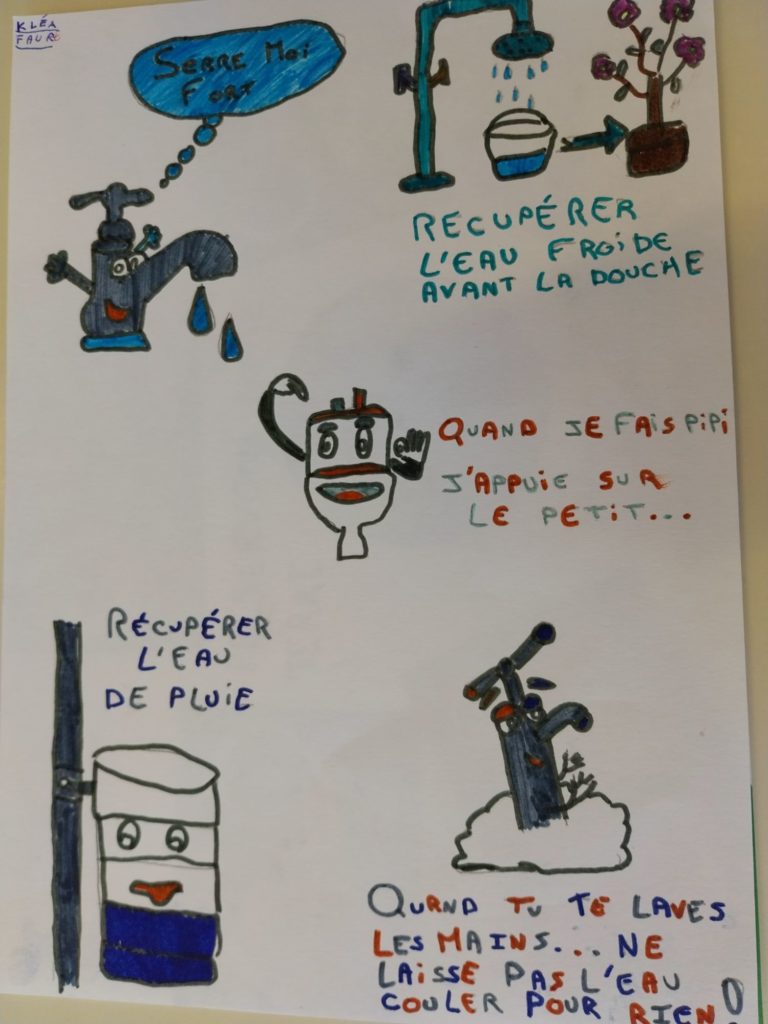 KLÉA
FAURE
SERRE MOi
FORT
RECUPÉRER
L'EAU FROiDE
AVANT LA DOUCHE
QUAND JE FAIS PiPi
J'APPUiE SUR
LE PETiT...
RÉCUPÉRER
L'EAU
DE PLUIE
QUAND TU TE LAVES
LES MAiNS... NE
LAiSSE PAS L'EAU
COULER POUR RIEN!